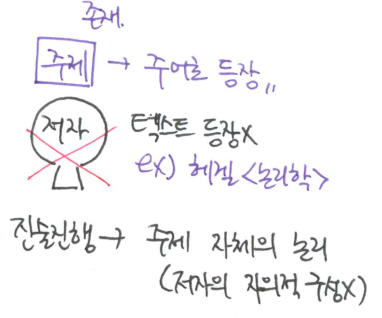 존재.
주제 → 주어로 등장〃
저자 텍스트 등장X
ex) 헤겔 <논리학>
진술진행 → 주제 자체의 논리
(저자의 자의적 구성X)